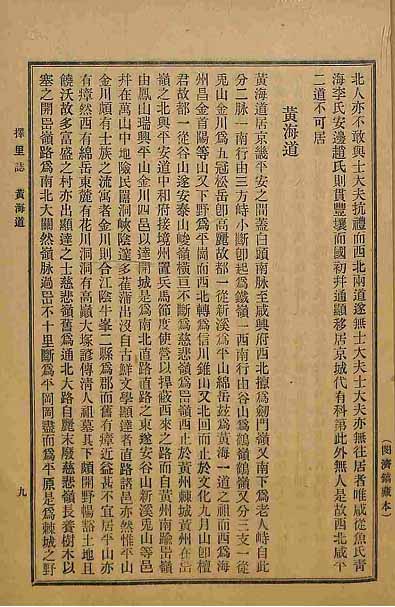 北人亦不敢與士大夫抗禮而西北兩道遂無士大夫士大夫亦無往居者唯咸從魚氏靑
海李氏安邊趙氏則貫豐壤而國初幷通顯移居京城代有科第此外無人是故西北咸平
二道不可居
黃海道
黃海道居京畿平安之間蓋白頭南脉至咸興府西北擅爲劒門嶺又南下爲老人峙自此
分二脉一南行由三方峙小斷卽起爲鐵嶺一西南行由谷山爲鶴嶺鶴嶺又分三支一從
兎山金川爲五冠松岳卽高麗故都一從新溪爲平山綿岳玆爲黃海一道之祖而西爲海
州昌金首陽等山又下野爲平岡而西北轉爲信川錐山又北回而止於文化九月山卽檀
君故都一從谷山遂安泰山峻嶺橫亘不斷爲慈悲嶺爲岊嶺西止於黃州棘城黃州在岊
嶺之北與平安道中和府接境州置兵馬節度使營以捍蔽西來之路自黃州南踰岊嶺
由鳳山瑞興平山金川四邑以達開城是爲南北直路直路之東遂安谷山新溪兎山等邑
幷在萬山中地險民嚚洞峽陰達多萑蒲出沒自古鮮文學顯達者直路諸邑亦然惟平山
金川頗有士族之流寓者金川則合江陰牛峯二縣爲郡而舊有瘴近益甚不宜居平山亦
有瘴然西有綿岳東麓有花川洞洞有高巔大塚諺傳淸人祖墓其下頗開野暢豁土地且
饒沃故多富盛之村亦出顯達之士慈悲嶺舊爲通北大路自麗末廢慈悲嶺長養樹木以
塞之開岊嶺路爲南北大關然嶺脉過岊不十里斷爲平岡岡盡而爲平原是爲棘城之野
擇里誌　黃海道
九
(閔濟鎬藏本)